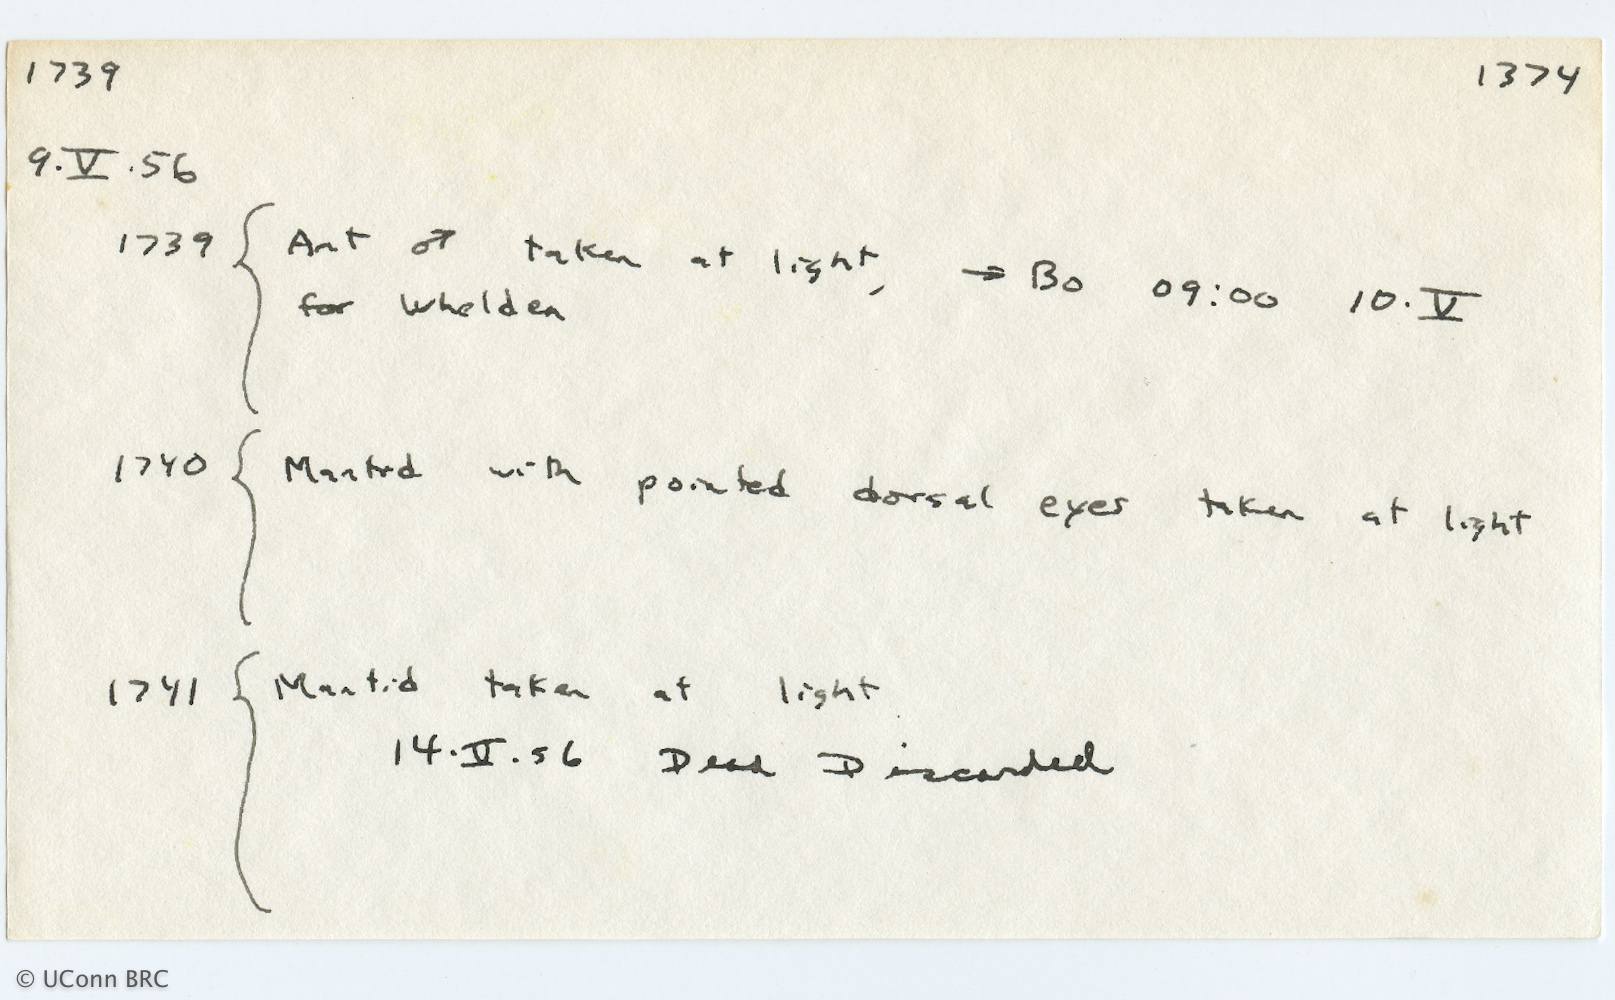 1739 1374
9.V.56
1739 { Ant ♂ taken at light, → Bo 09:00 10.V
for Whelden
1740 { Mantid with pointed dorsal eyes taken at light
1741 { Mantid taken at light
14.V.56 Dead Discarded
© UConn BRC